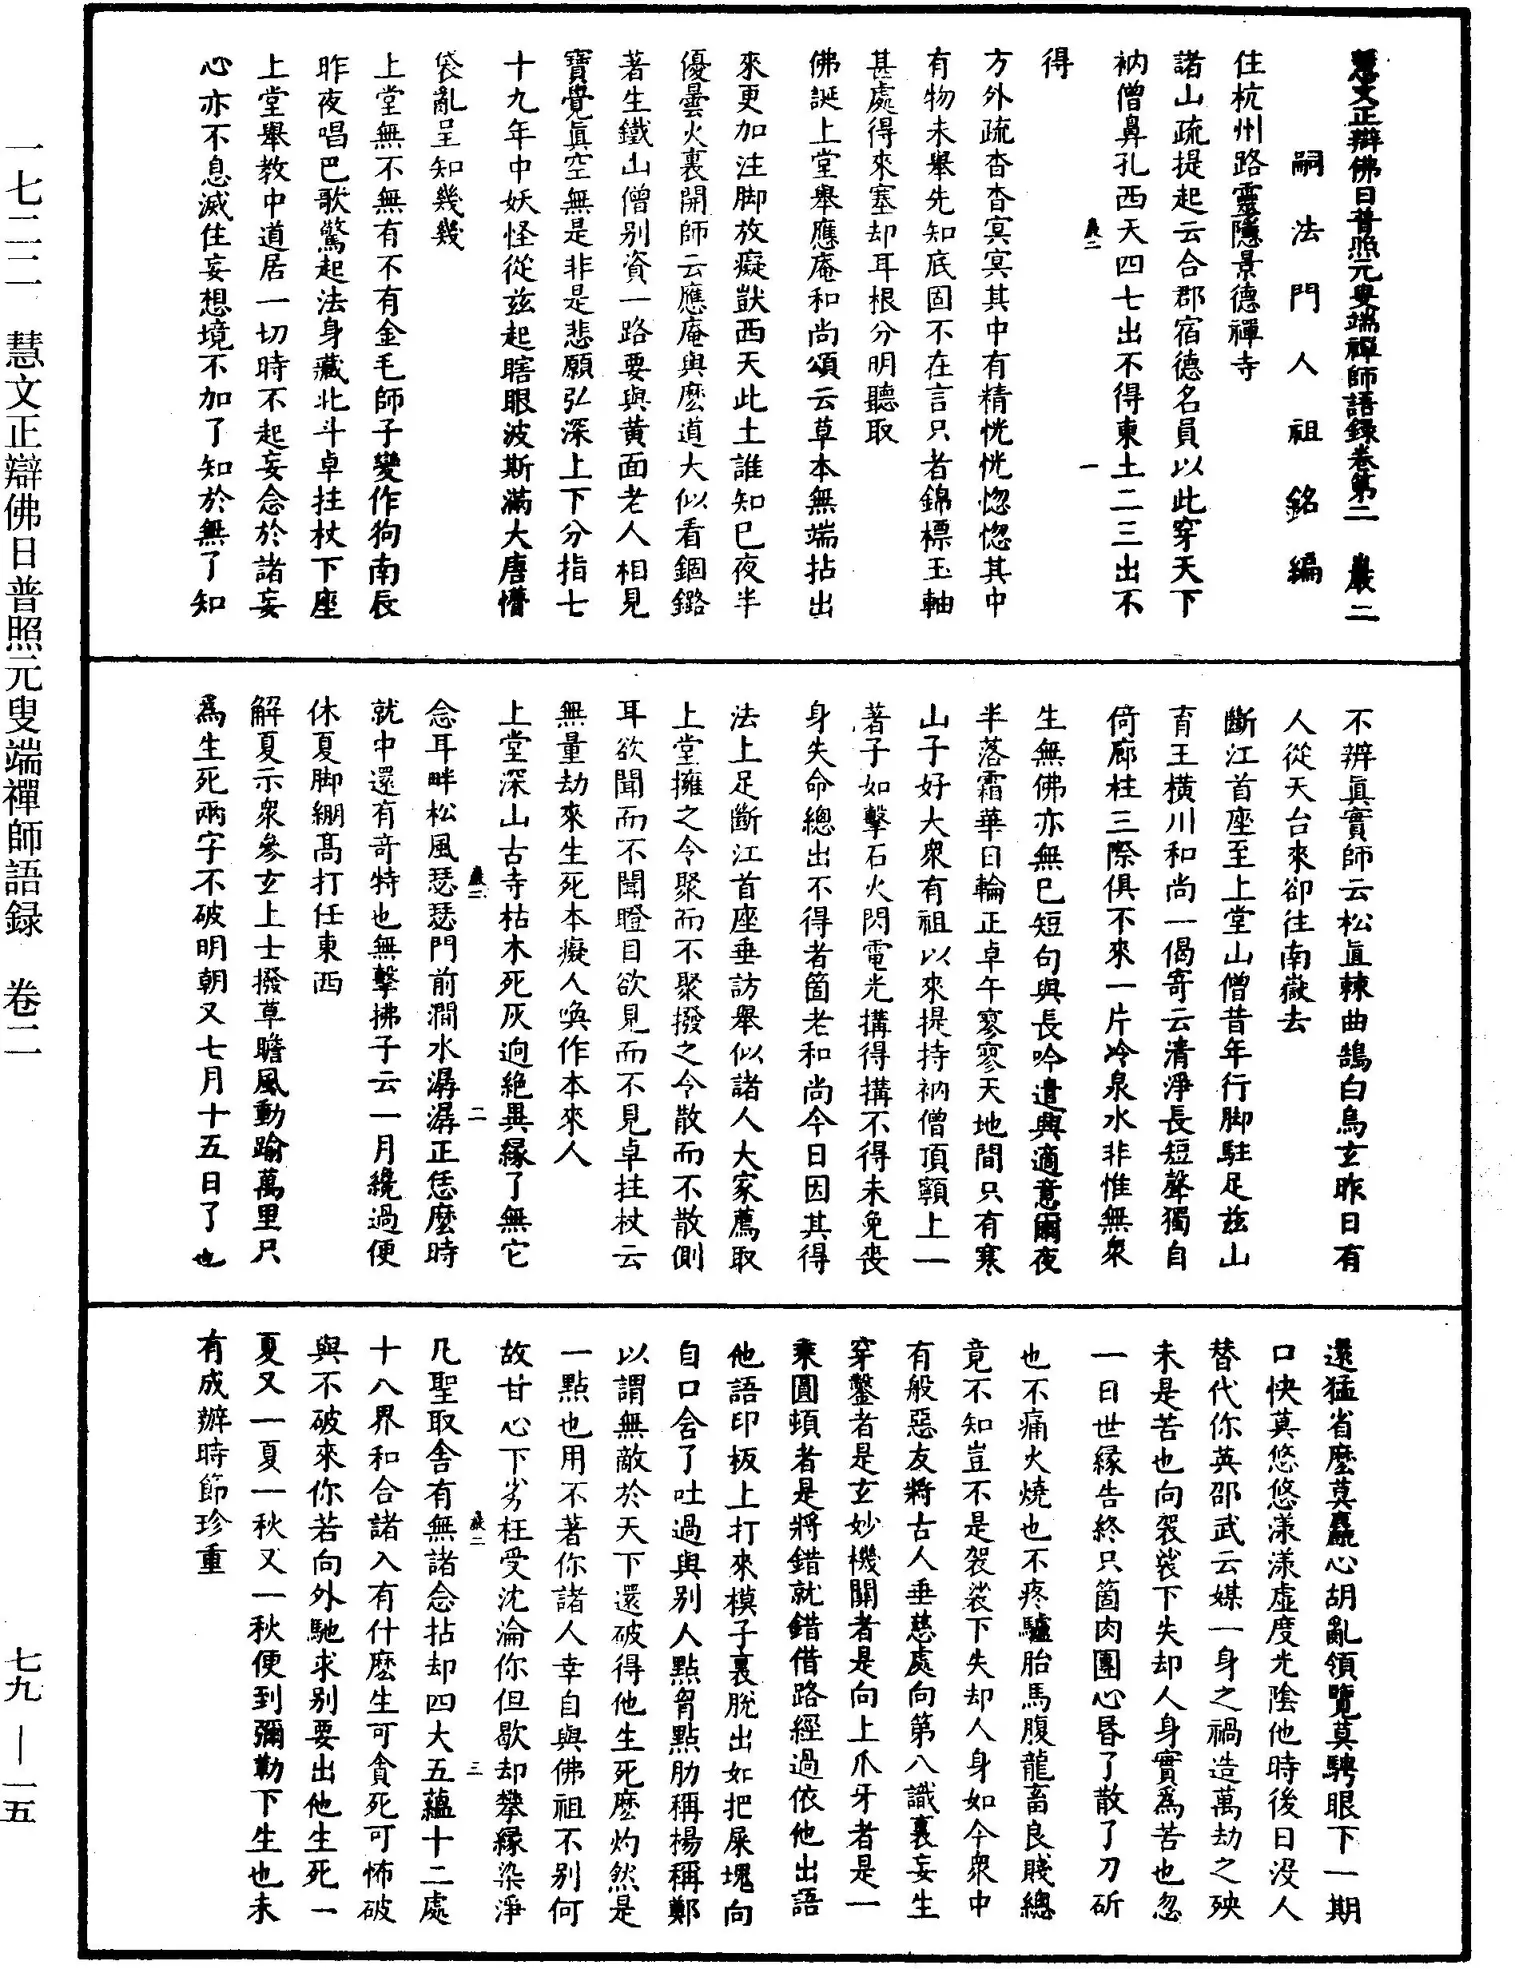 慧文正辯佛日普照元叟端禪師語錄卷第二　巖二
嗣法門人祖銘編
住杭州路靈隱景德禪寺
諸山疏提起云合郡宿德名員以此穿天下
衲僧鼻孔西天四七出不得東土二三出不
得
方外疏杳杳冥冥其中有精恍恍惚惚其中
有物未舉先知底固不在言只者錦標玉軸
甚處得來塞却耳根分明聽取
佛誕上堂舉應庵和尚頌云草本無端拈出
來更加注脚放癡獃西天此土誰知巳夜半
優曇火裏開師云應庵與麽道大似看錮鏴
著生鐵山僧別資一路要與黄面老人相見
寶覺眞空無是非是悲願弘深上下分指七
十九年中妖怪從兹起瞎眼波斯滿大唐懵
袋亂呈知幾幾
上堂無不無有不有金毛師子變作狗南辰
昨夜唱巴歌驚起法身藏北斗卓拄杖下座
上堂舉教中道居一切時不起妄念於諸妄
心亦不息滅住妄想境不加了知於無了知
不辨眞實師云松直棘曲鵠白烏玄昨日有
人從天台來卻往南嶽去
斷江首座至上堂山僧昔年行脚駐足兹山
育王橫川和尚一偈寄云清淨長短聲獨自
倚廊柱三際俱不來一片冷泉水非惟無衆
生無佛亦無巳短句與長吟遣興適意爾夜
半落霜華日輪正卓午寥寥天地間只有寒
山子好大衆有祖以來提持衲僧頂𩕳上一
著子如擊石火閃電光搆得搆不得未免喪
身失命總出不得者箇老和尚今日因其得
法上足斷江首座垂訪舉似諸人大家薦取
上堂擁之令聚而不聚撥之令散而不散側
耳欲聞而不聞瞪目欲見而不見卓拄杖云
無量劫來生死本癡人喚作本來人
上堂深山古寺枯木死灰逈絶異縁了無它
念耳畔松風瑟瑟門前澗水潺潺正恁麽時
就中還有竒特也無擊拂子云一月纔過便
休夏脚綳髙打任東西
解夏示衆參玄上士撥草瞻風動踰萬里只
爲生死兩字不破明朝又七月十五日了也
還猛省麽莫麤心胡亂領覽莫騁眼下一期
口快莫悠悠漾漾虛度光陰他時後日没人
替代你英邵武云媒一身之禍造萬劫之殃
未是苦也向袈裟下失却人身實爲苦也忽
一日世縁告終只箇肉團心昏了散了刀斫
也不痛火燒也不疼驢胎馬腹龍畜良賤總
竟不知豈不是袈裟下失却人身如今衆中
有般惡友將古人垂慈處向第八識裏妄生
穿鑿者是玄妙機關者是向上爪牙者是一
乘圓頓者是將錯就錯借路經過依他出語
他語印板上打來模子裏脫出如把屎塊向
自口舍了吐過與別人點胷點肋稱楊稱鄭
以謂無敵於天下還破得他生死麽灼然是
一點也用不著你諸人幸自與佛祖不別何
故甘心下劣枉受沈淪你但歇却攀縁染淨
凡聖取舍有無諸念拈却四大五蘊十二處
十八界和合諸入有什麽生可貪死可怖破
與不破來你若向外馳求别要出他生死一
夏又一夏一秋又一秋便到彌勒下生也未
有成辦時節珍重
巖二　一
巖二　二
巖二　三
一七二二　慧文正辯佛日普照元叟端禪師語録　卷二
七九—一五